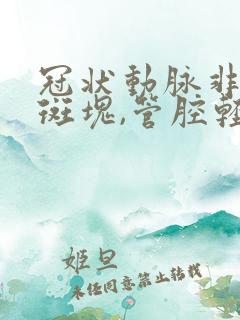 冠状動脉非
斑塊,管腔輕
姬旦
未经同意禁止转载